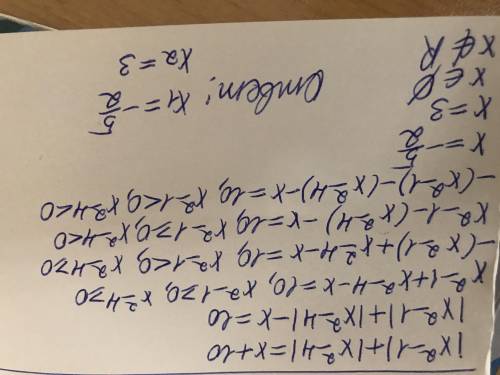 |x²-1|+|x²-4|=x+10
|x²-1|+|x²-4|-x=10
x²-1+x²-4-x=10, x²-1⩾0, x²-4⩾0
-(x²-1)+x²-4-x=10, x²-1<0, x²-4⩾0
x²-1-(x²-4)-x=10, x²-1⩾0, x²-4<0
-(x²-1)-(x²-4)-x=10, x²-1<0, x²-4<0
x=-5/2
x=3
x∈∅
x∉R
Ответ: x₁=-5/2
x₂=3